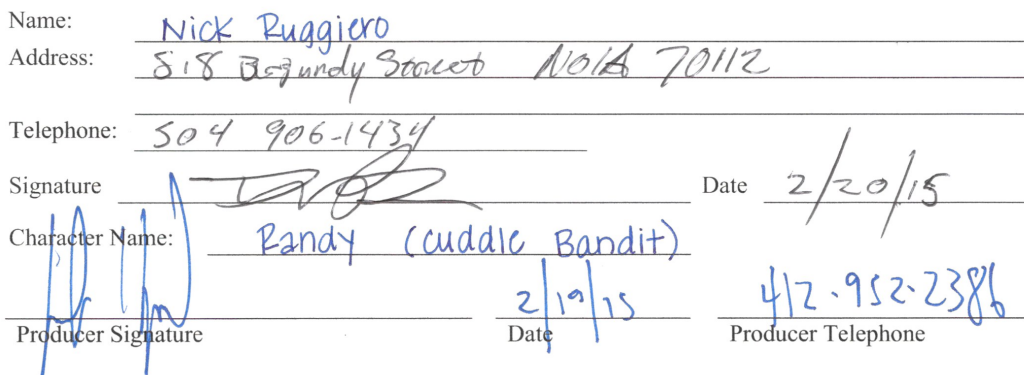 Name: Nick Ruggiero
Address: 818 Burgundy Street NOLA 70112
Telephone: 504 906-1434
Signature Date 2/20/15
Character Name: Randy (cuddle Bandit)
2/19/15 412.952.2386
Producer Signature Date Producer Telephone